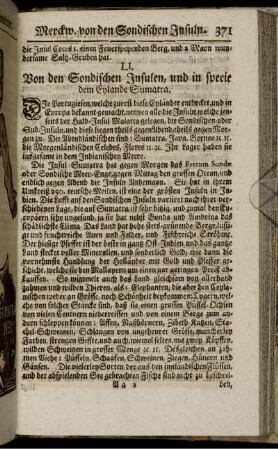 Merckw. von den Sondischen Insuln. 371
die Insul Cores 1. einen Feuerspeyenden Berg, und 2 Mayn wun-
dersame Saltz-Gruben hat.
LI.
Von den Sondischen Insulen, und in specie
dem Eylande Sumatra.
Die Portugiesen, welche zuerst diese Eyländer entdecket, und in
Europa bekannt gemacht, nennen alle die Insuln, welche jen-
seit der Halb-Insul Malacca gelegen, die Sondischen oder
Sud-Insuln, und diese liegen theils gegen Abend, theils gegen Mor-
gen zu. Die Abendländischen sind: Sumatra, Java, Borneo &c. &c.
die Morgenländischen Celebes, Flores &c. &c. Ihr Lager haben sie
insgesamt in dem Indianischen Meere.
Die Insul Sumatra hat gegen Morgen das Fretum Sundæ
oder Sondische Meer-Enge, gegen Mittag den grossen Ocean, und
endlich gegen Abend die Insuln Andemaon. Sie hat in ihrem
Umkreiß 250. teutsche Meilen, ist eine der grösten Insuln in In-
dien. Die Lufft auf den Sondischen Insuln variiret nach ihrer ver-
schiedenen Lage, die auf Sumatra ist sehr hitzig, und zumal den Eu-
ropäern sehr ungesund, ja sie hat nebst Banda und Amboina das
schädlichste Clima. Das Land hat hohe
und fruchtreiche Auen und Felder, und
Der hiesige Pfeffer ist der beste in gantz Ost-Indien, und das gantze
Land stecket voller Mineralien, und sonderlich Gold, wie dann die
vornehmste Handlung der Holländer mit Gold und Pfeffer ge-
schicht, welche sie den Mallayern um einen gar geringen Preiß ab-
kauffen. So wimmelt auch das Land gleichsam von allerhand
zahmen und wilden Thieren, als: Elephanten, die aber den Ceyla-
nischen weder an Grösse, noch Schönheit beykommen; Tygern, wel-
che von solcher Stärcke sind, daß sie einen grossen Büffel-Ochsen
von vielen Centnern niederreissen und von einem Berge zum an-
dern schleppen können: Affen, Naßhörnern, Zibeth-Katzen, Sta-
chel-Schweinen, Schlangen von ungeheurer Grösse, mancherley
Farben, strengen Giffte, und auch, wiewol selten, mit zwey Köpffen,
wilden Schweinen in grosser Menge &c. &c. Desgleichen an zah-
men Viehe: Büffeln, Schaafen, Schweinen, Ziegen, Hünern und
Gänsen. Die vielerley Sorten der aus den innländischen Flüssen,
und der abspielenden See gebrachten Fische sind nicht zu beschrei-
A a 2 ben,